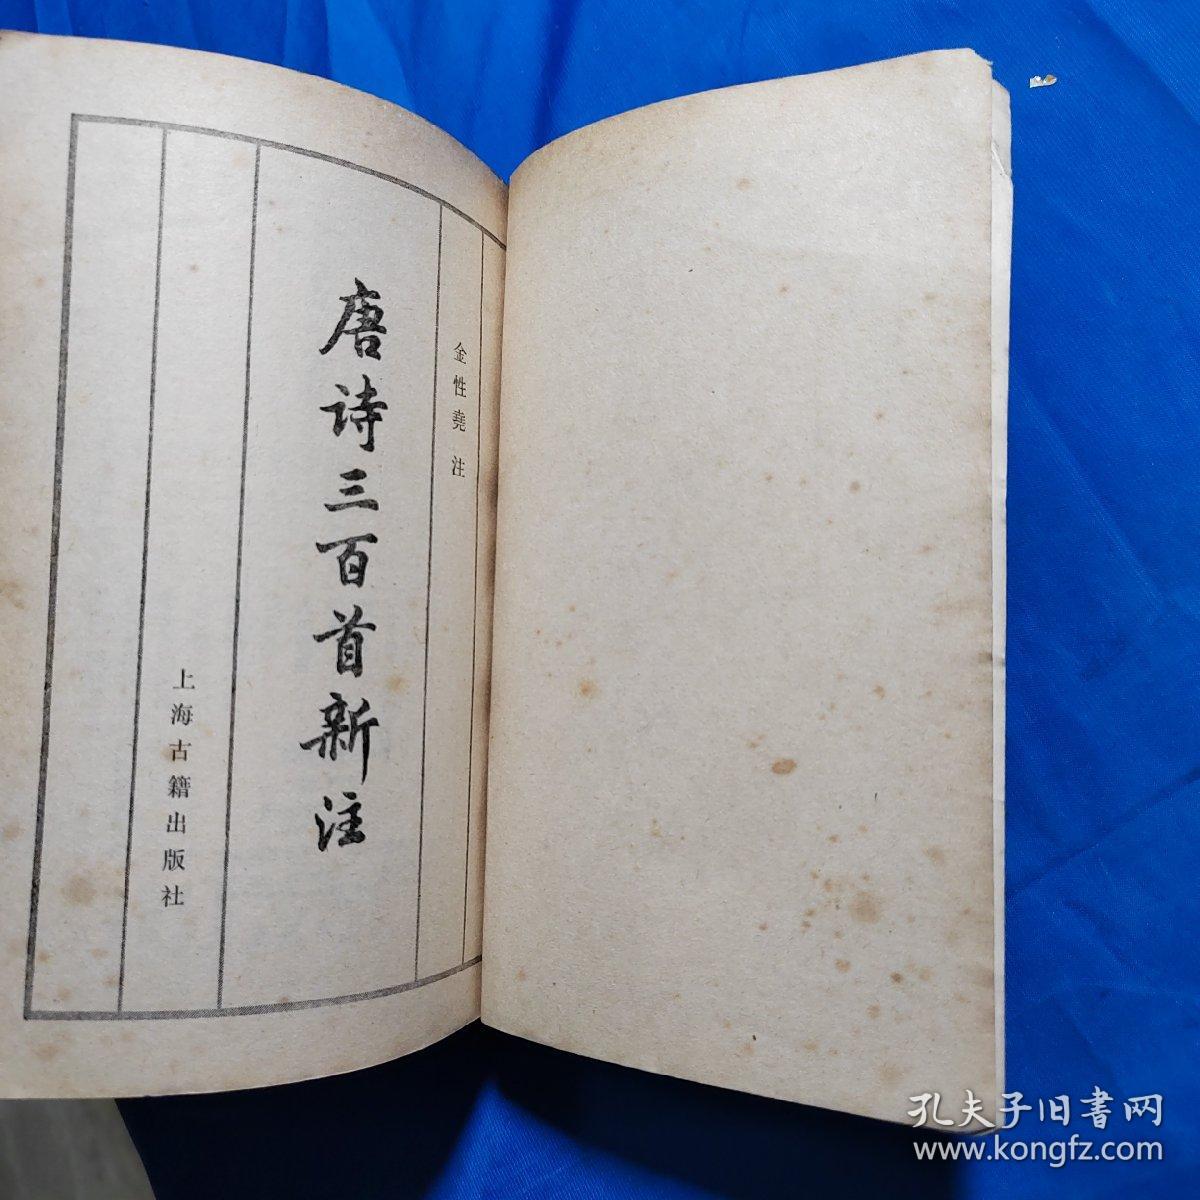 金性堯 注
唐诗三百首新注
上海古籍出版社
孔夫子旧書网
www.kongfz.com